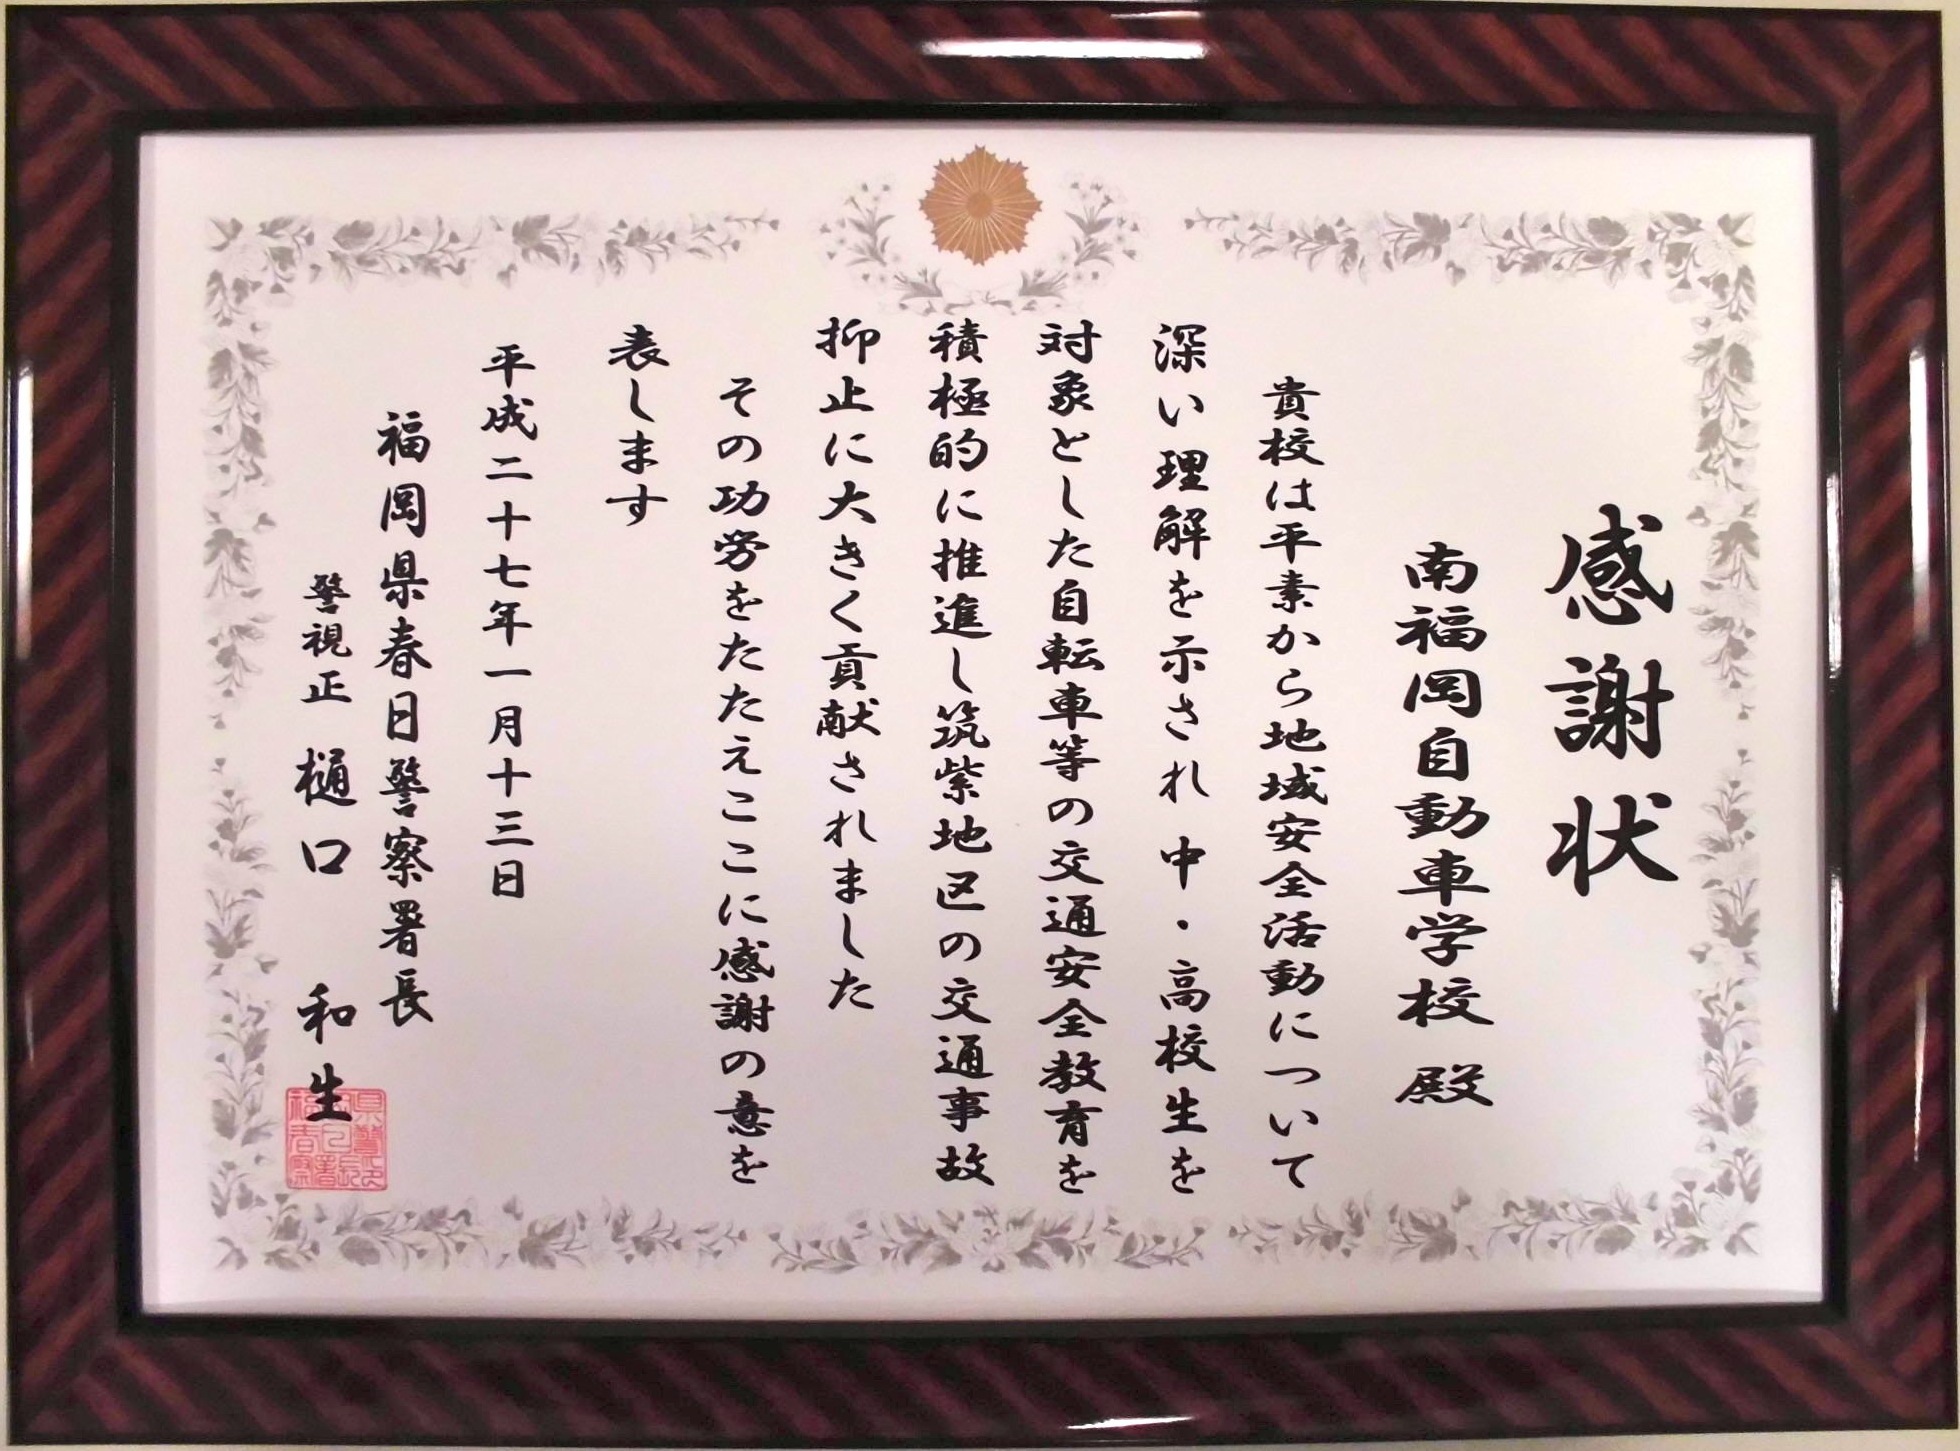 感謝状
南福岡自動車学校 殿
貴校は平素から地域安全活動について
深い理解を示され中・高校生を
対象とした自転車等の交通安全教育を
積極的に推進し筑紫地区の交通事故
抑止に大きく貢献されました
その功労をたたえここに感謝の意を
表します
平成二十七年一月十三日
福岡県春日警察署長
警視正 樋口 和生